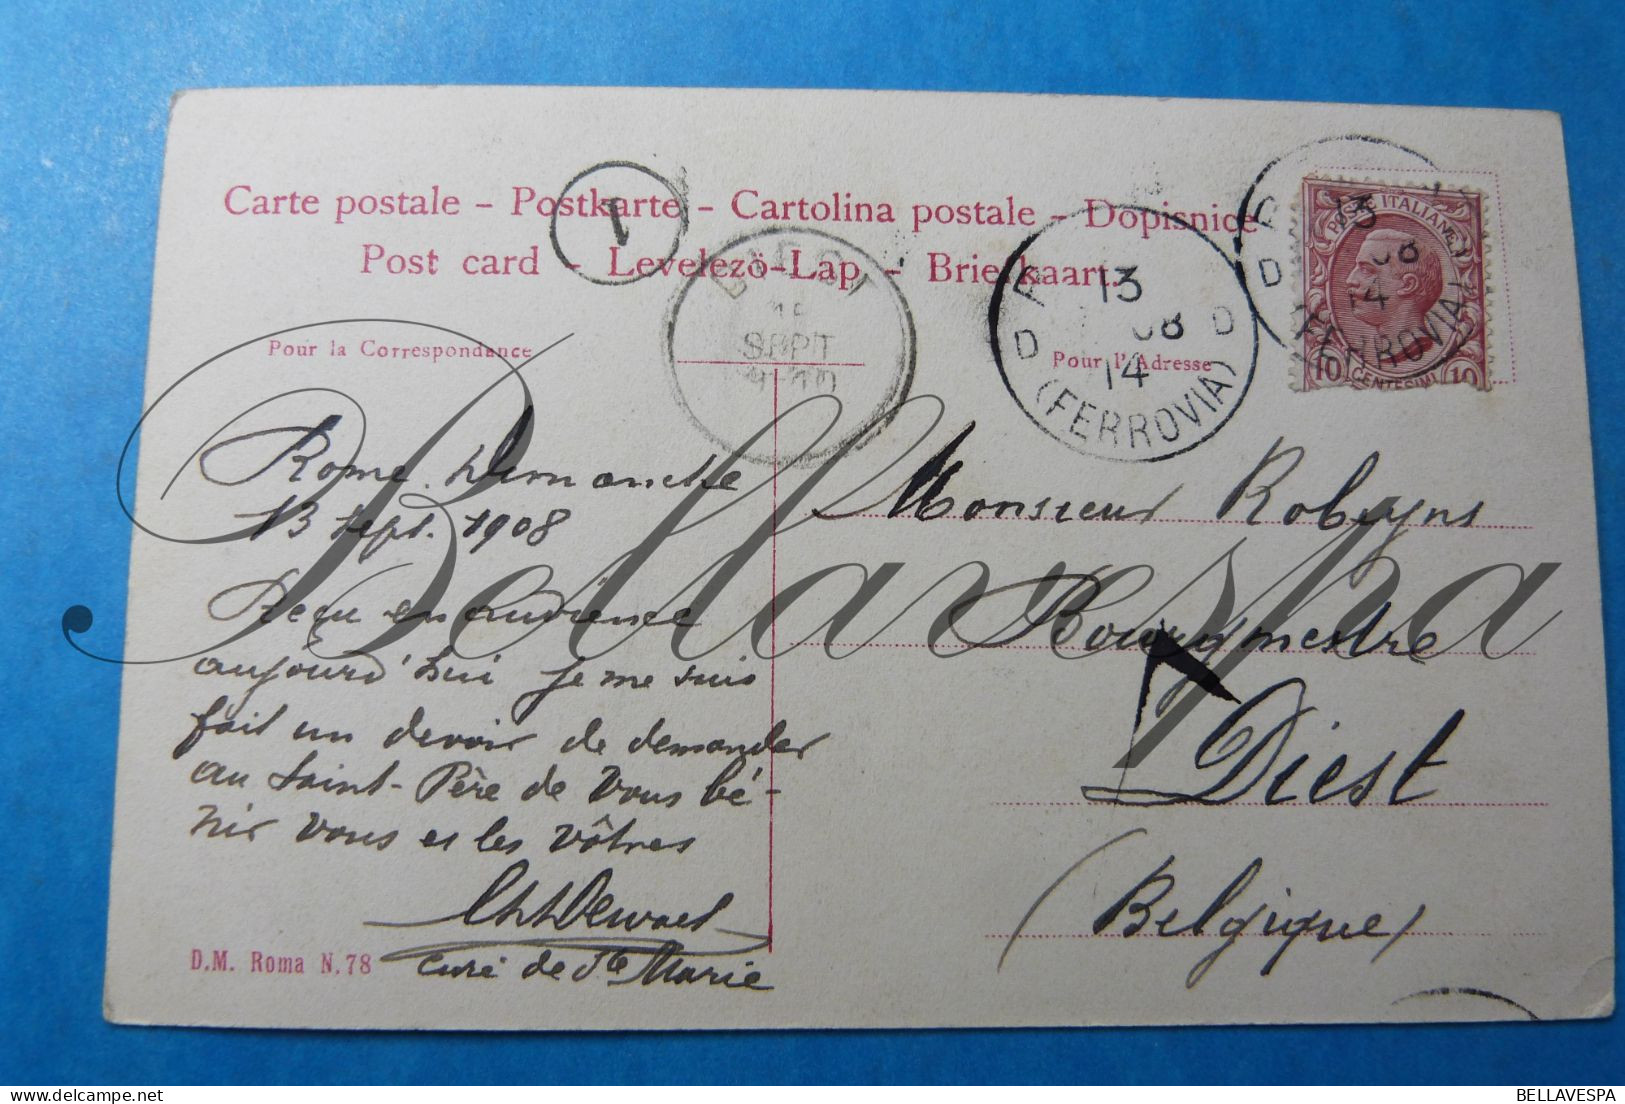 Carte postale – Postkarte – Cartolina postale – Dopisnice
Post card – Levelezö-Lap – Briefkaart.
1
DIEST
SEPT
13
08
14
D D
(FERROVIA)
13
08
14
D
(FERROVIA)
POSTE ITALIANE
10 CENTESIMI 10
Pour la Correspondance
Pour l'Adresse
Rome. Dimanche
13 sept. 1908
Reçu en audience
aujourd'hui je me suis
fait un devoir de demander
au Saint-Père de vous bé-
nir vous et les vôtres
Dewael
Curé de Ste Marie
Monsieur Robeyns
Bourgmestre
Diest
(Belgique)
D.M. Roma N. 78
Bellavespa
BELLAVESPA